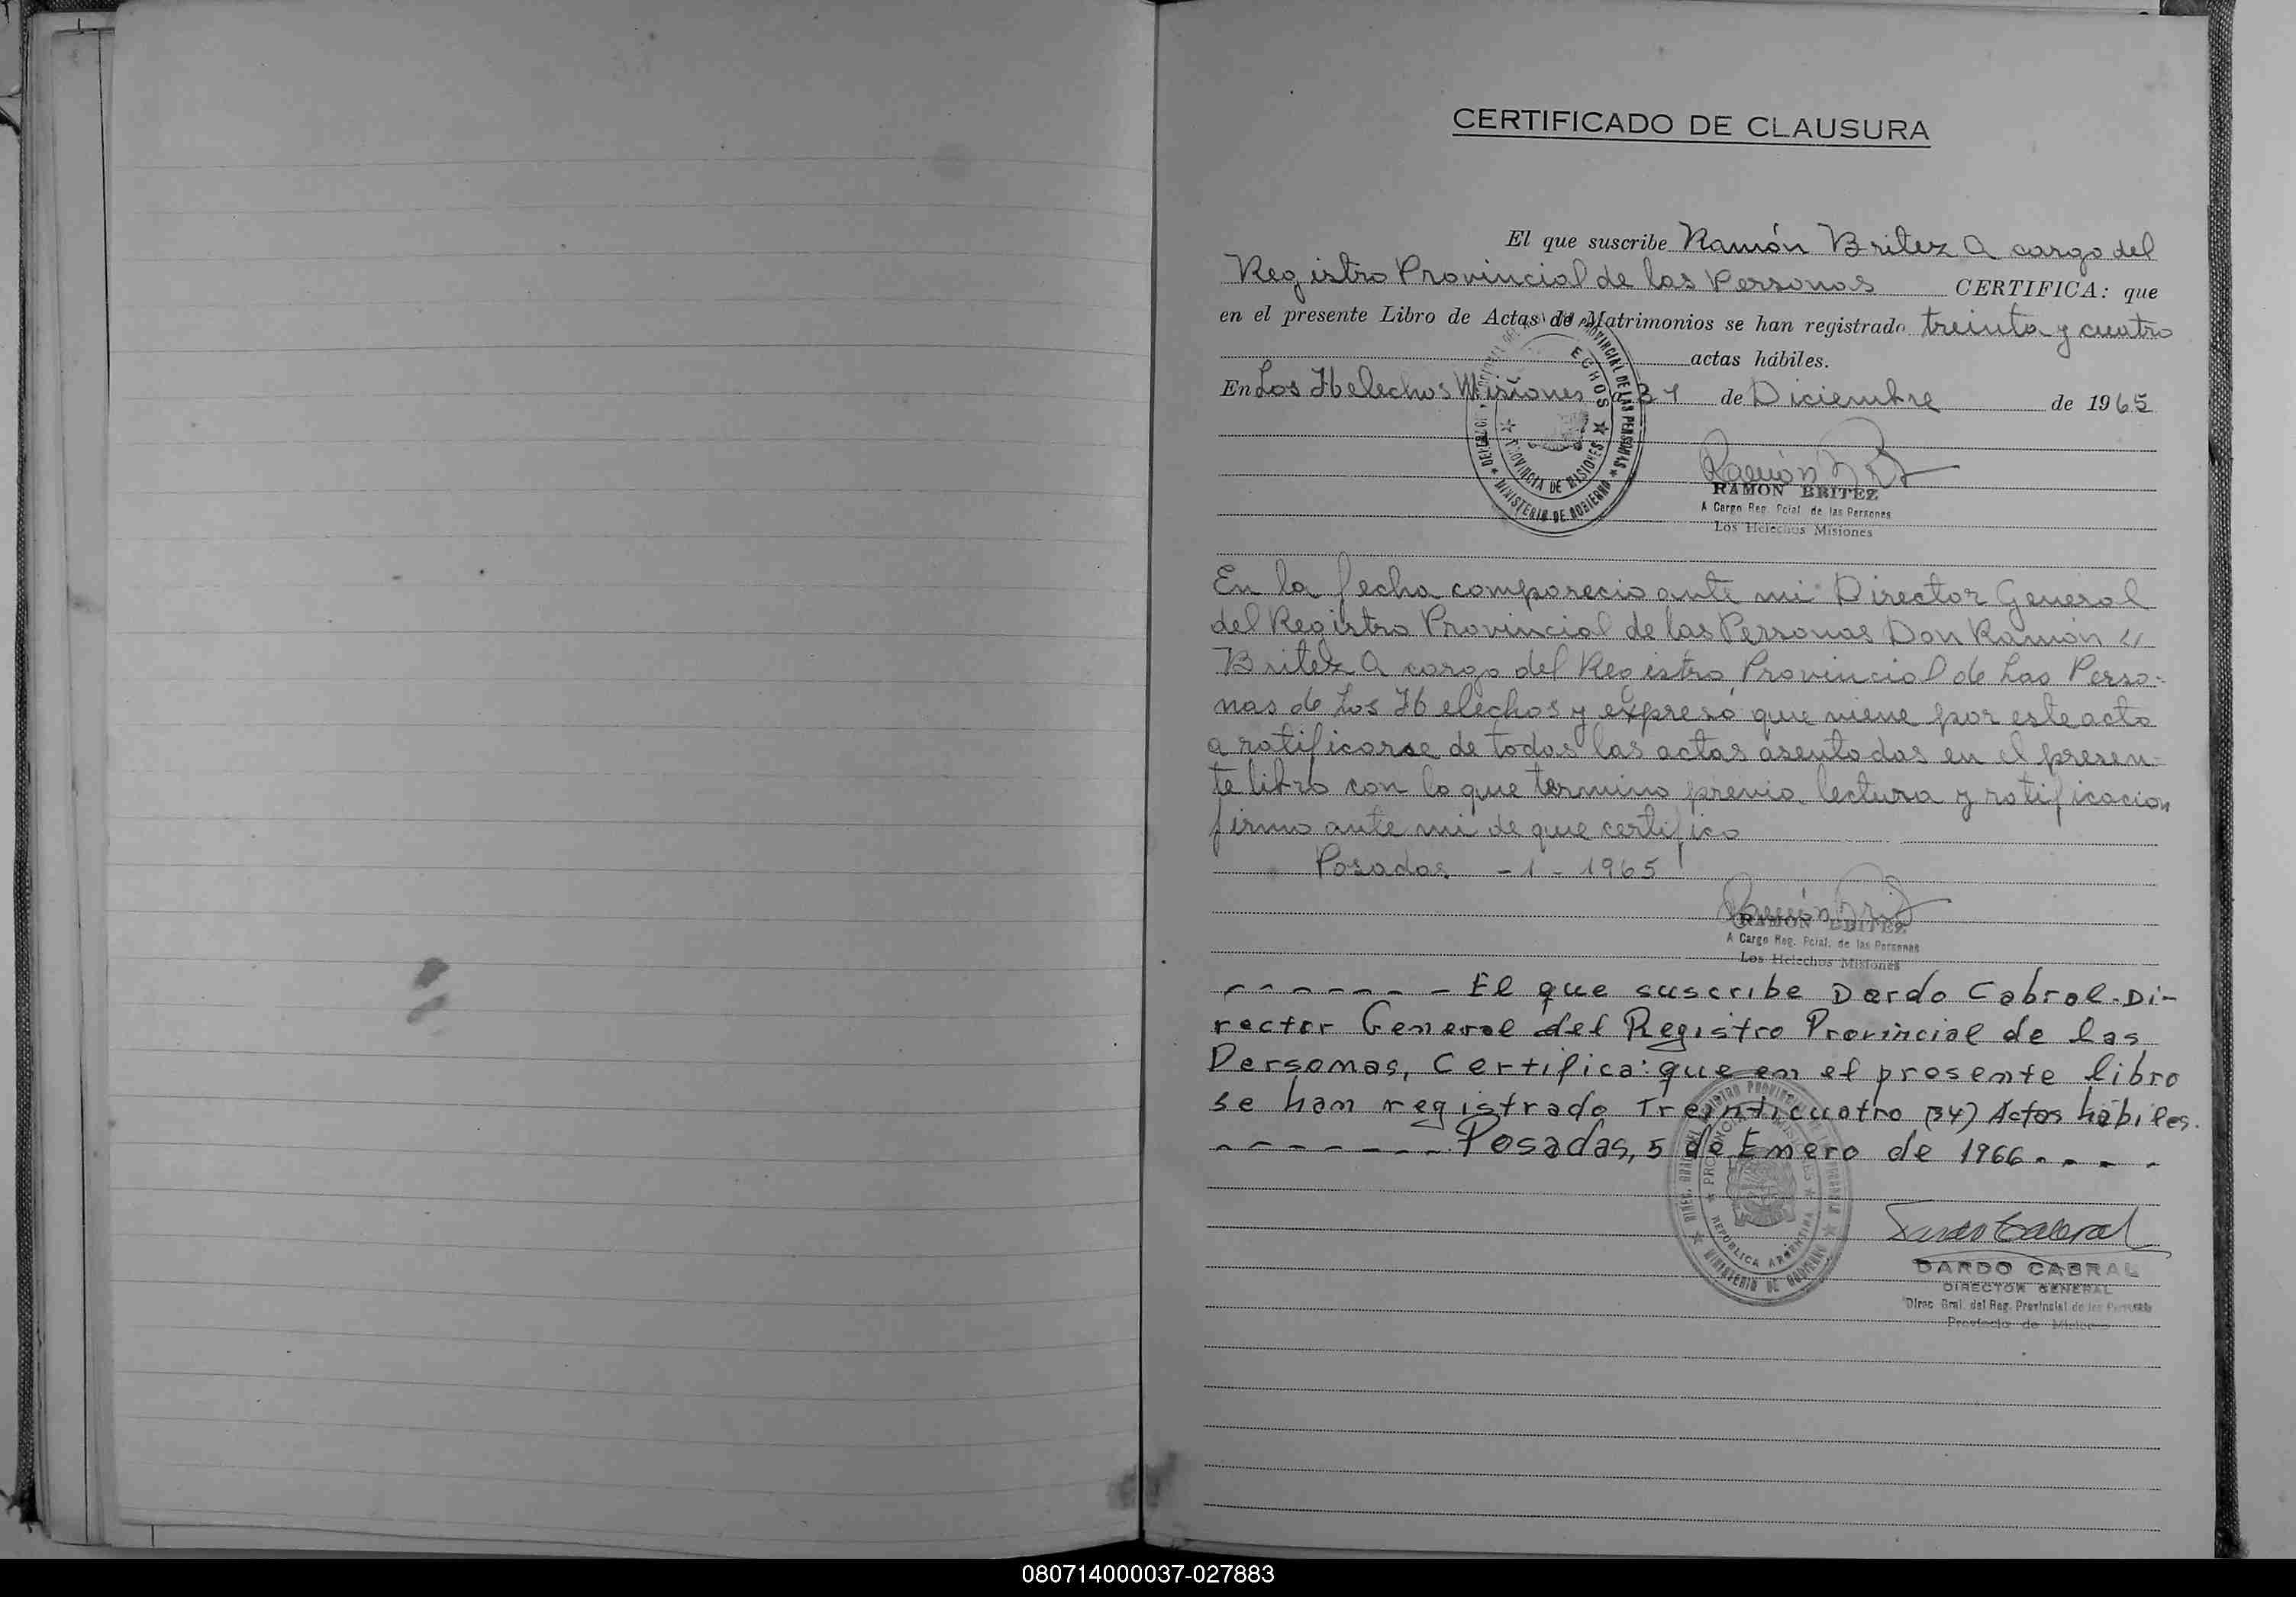 CERTIFICADO DE CLAUSURA
El que suscribe Ramón Britez A cargo del
Registro Provincial de las Personas CERTIFICA: que
en el presente Libro de Actas de Matrimonios se han registrado treinta y cuatro
actas hábiles.
En Los Helechos Misiones a 31 de Diciembre de 1965
RAMON BRITEZ
A Cargo Reg. Pcial. de las Personas
Los Helechos Misiones
En la fecha comparecio ante mi Director General
del Registro Provincial de las Personas Don Ramón
Britez A cargo del Registro Provincial de Las Perso-
nas de Los Helechos y expresó que viene por este acto
a ratificarse de todas las actas asentadas en el presen-
te libro con lo que termino previa lectura y ratificacion
firmo ante mi de que certifico
Posadas - 1 - 1965
RAMON BRITEZ
A Cargo Reg. Pcial. de las Personas
Los Helechos Misiones
El que suscribe Dardo Cabral-Di-
rector General del Registro Provincial de las
Personas, Certifica: que en el presente libro
se han registrado Treinticuatro (34) Actas hábiles.
Posadas, 5 de Enero de 1966
PROVINCIA DE MISIONES
MINISTERIO DE GOBIERNO
REPUBLICA ARGENTINA
MINISTERIO DE GOBIERNO
Dardo Cabral
DARDO CABRAL
DIRECTOR GENERAL
Direc. Gral. del Reg. Provincial de las Personas
Provincia de Misiones
080714000037-027883